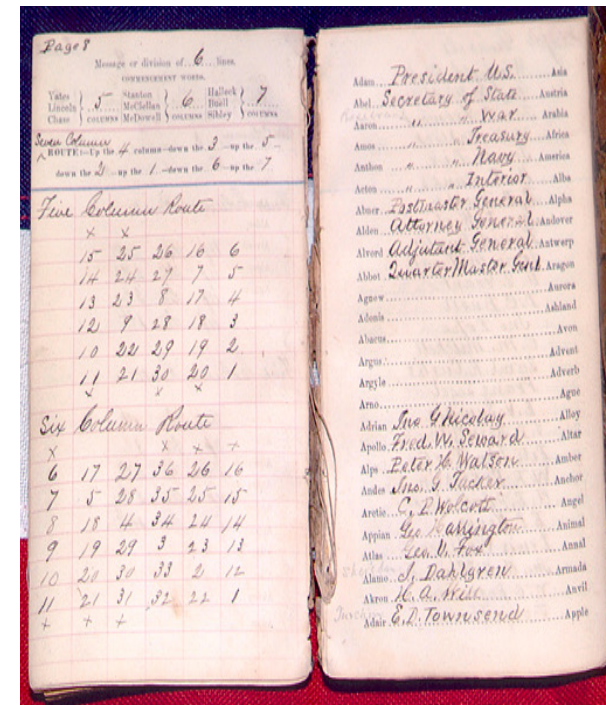 Page 8
Message or division of 6 lines.
COMMENCEMENT WORDS.
Yates Stanton Halleck
Lincoln } 5 McClellan } 6 Buell } 7
Chase COLUMNS McDowell COLUMNS Sibley COLUMNS
Seven Column
ROUTE:—Up the 4 column—down the 3—up the 5—
down the 2—up the 1—down the 6—up the 7
Five Column Route
x x
15 25 26 16 6
14 24 27 7 5
13 23 8 17 4
12 9 28 18 3
10 22 29 19 2
11 21 30 20 1
x x x
Six Column Route
x x x +
6 17 27 36 26 16
7 5 28 35 25 15
8 18 4 34 24 14
9 19 29 3 23 13
10 20 30 33 2 12
11 21 31 32 22 1
+ + +
Adam President U.S. Asia
Abel Secretary of State Austria
Aaron " " War Arabia
Amos " " Treasury Africa
Anthon " " Navy America
Acton " " Interior Alba
Abner Postmaster General Alpha
Alden Attorney General Andover
Alvord Adjutant General Antwerp
Abbot Quarter Master Genl Aragon
Agnew Aurora
Adonis Ashland
Abacus Avon
Argus Advent
Argyle Adverb
Arno Ague
Adrian Jno G Nicolay Alloy
Apollo Fred. W. Seward Altar
Alps Peter H. Watson Amber
Andes Jno. G. Tucker Anchor
Arctic C. P. Wolcott Angel
Appian Geo Harrington Animal
Atlas Geo. V. Fox Annal
Alamo J. Dahlgren Armada
Akron H. A. Wise Anvil
Adair E. D. Townsend Apple